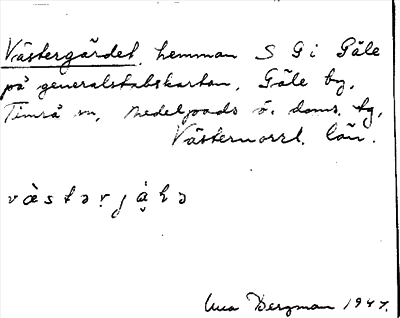 Västergärdet, hemman S G i Gäle
på generalstabskartan, Gäle by,
Timrå sn, Medelpads ö. doms. tg,
Västernorrl. län.
Bergman 1947.